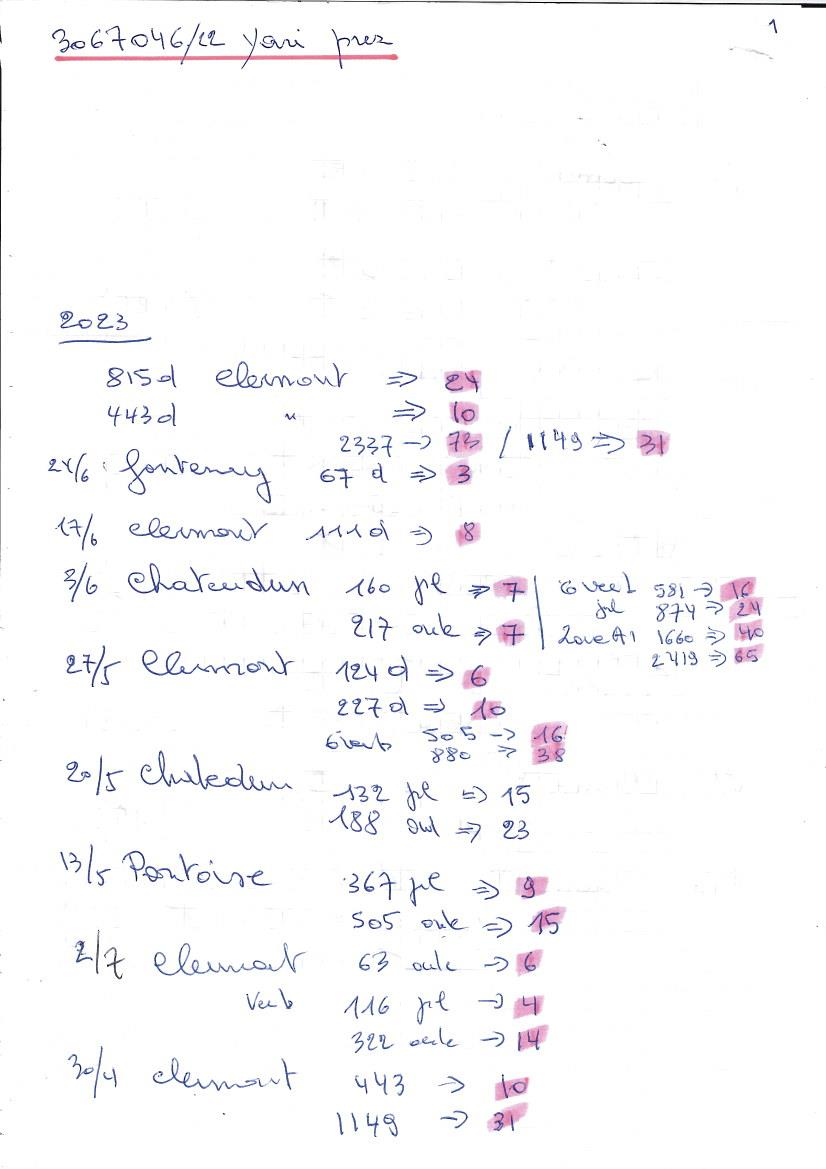 1
3067046/22 Yari prez
2023
815d Clermont => 24
443d " => 10
2337 -> 73 / 1149 => 31
24/6 : fontenay 67 d => 3
17/6 Clermont 111d => 8
3/6 Chateudun 160 jl => 7 | 6 verb 581 -> 16
jl 874 -> 24
217 oude => 7 | Zone A1 1660 => 40
2419 => 65
27/5 Clermont 124 d => 6
227 d => 10
6 verb 505 -> 16
880 => 38
20/5 Chatedun 132 jl => 15
188 oud => 23
13/5 Pontoise 367 jl => 9
505 oude => 15
2/7 Clermont 63 oude -> 6
Verb 116 jl -> 4
322 oude -> 14
30/4 Clermont 443 -> 10
1149 -> 31